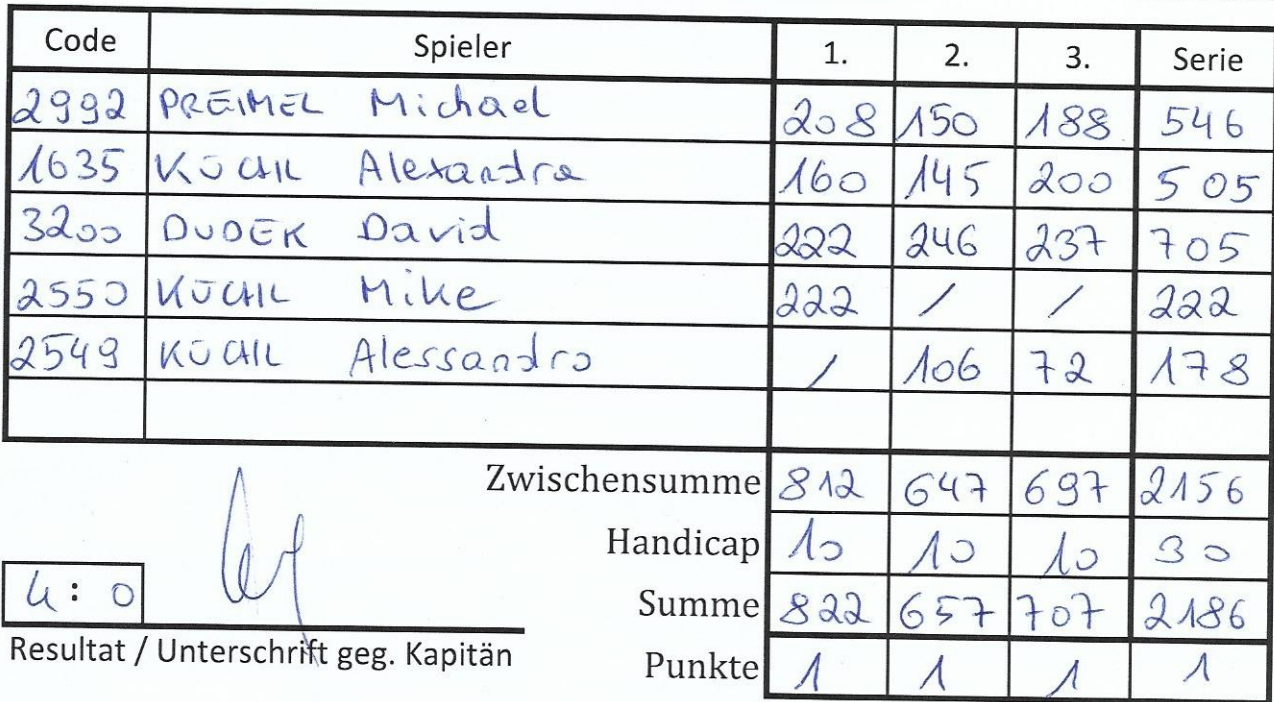 Code Spieler 1. 2. 3. Serie
2992 PREIMEL Michael 208 150 188 546
1635 KÜCHL Alexandra 160 145 200 505
3200 DUDEK David 222 246 237 705
2550 KÜCHL Mike 222 / / 222
2549 KÜCHL Alessandro / 106 72 178
Zwischensumme 812 647 697 2156
Handicap 10 10 10 30
4 : 0 Summe 822 657 707 2186
Resultat / Unterschrift geg. Kapitän Punkte 1 1 1 1